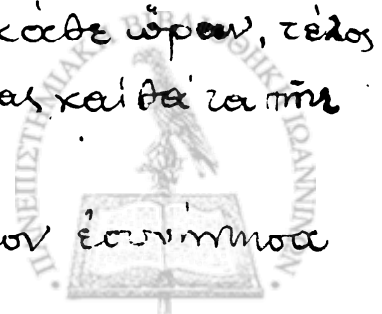 κάθε ὥραν, τέλος
ας καὶ θὰ τα πῆς
ον ἐσυνήντησα
ΠΑΝΕΠΙΣΤΗΜΙΑΚΗ ΒΙΒΛΙΟΘΗΚΗ ΙΩΑΝΝΙΝΩΝ